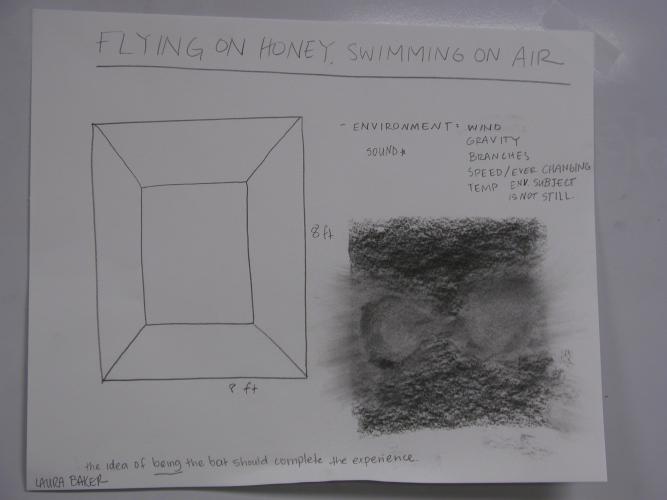 FLYING ON HONEY, SWIMMING ON AIR
- ENVIRONMENT: WIND
GRAVITY
SOUND*
BRANCHES
SPEED/EVER CHANGING
TEMP ENV. SUBJECT
IS NOT STILL.
8 ft
8 ft
the idea of being the bat should complete the experience.
LAURA BAKER